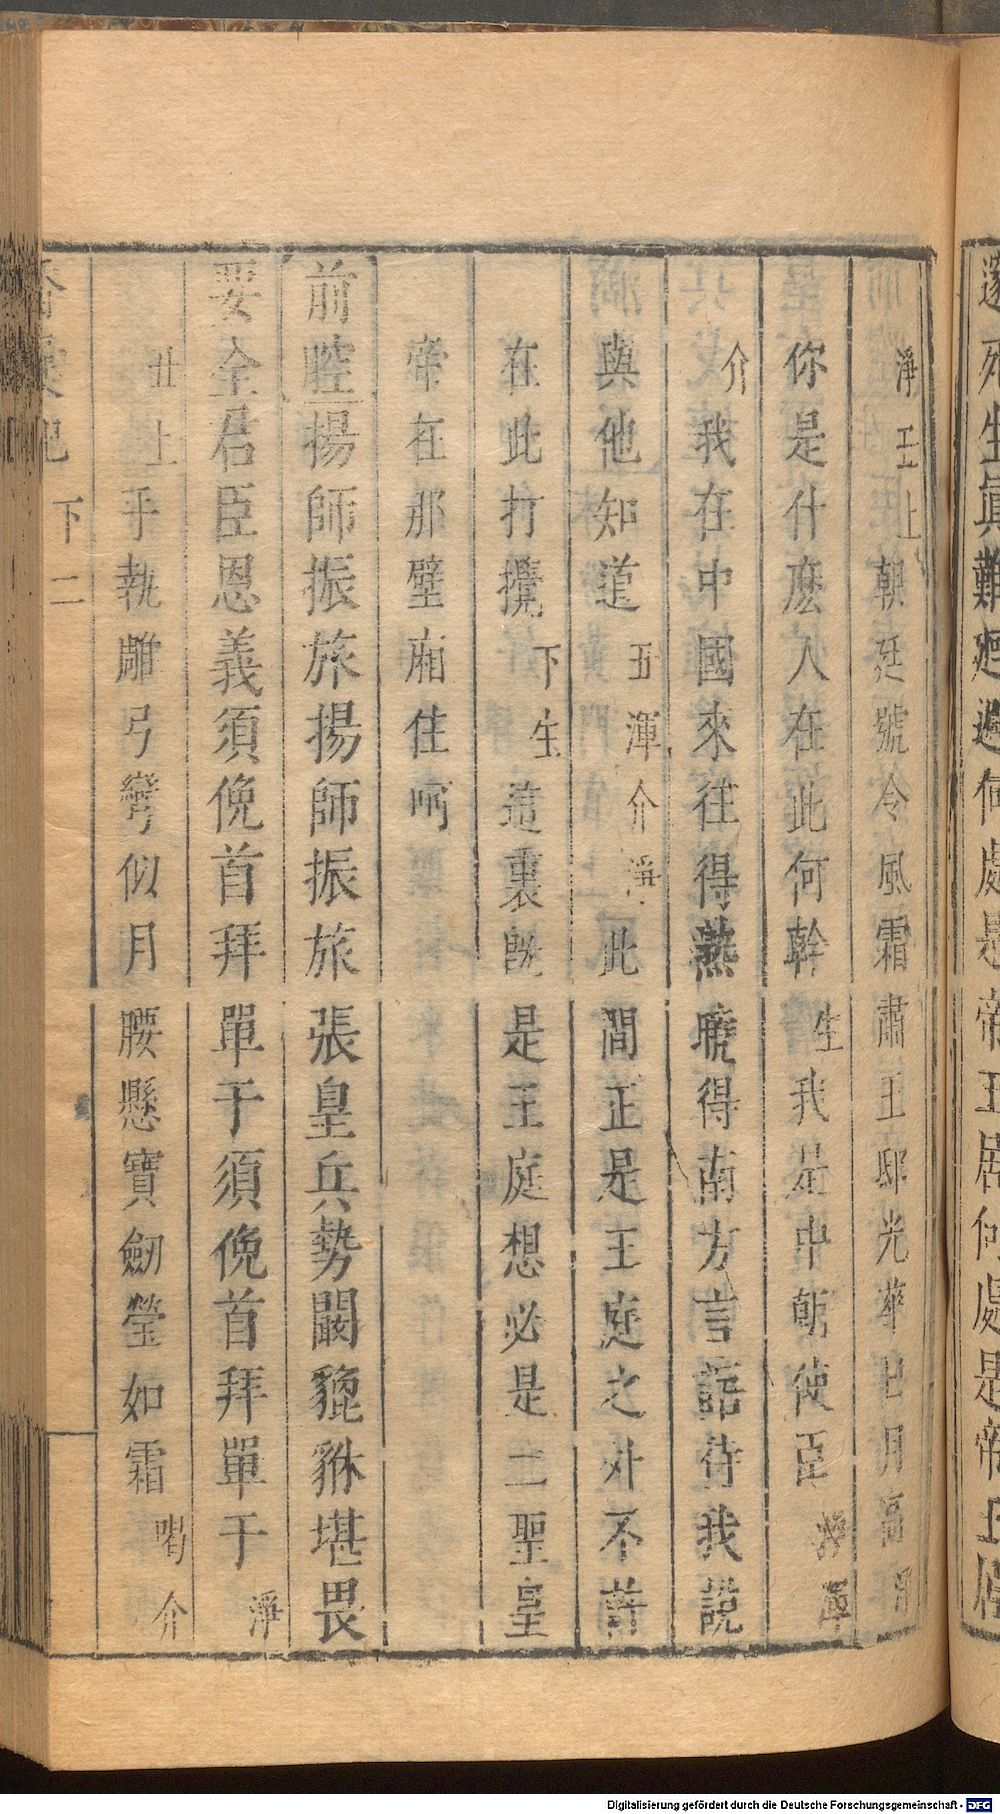 遂死生眞難廻避何處是帝王居何處是帝王居
淨上朝廷號令風霜肅王邸光華日月高
你是什麽人在此何幹生我是中朝使臣
介我在中國來往得熟曉得南方言語待我說
與他知道丑渾介淨此間正是王庭之外不許
在此打攪下生這裏旣是王庭想必是二聖皇
帝在那壁廂住呵
前腔揚師振旅揚師振旅張皇兵勢闞貔貅堪畏
要全君臣恩義須俛首拜單于須俛首拜單于淨
丑上手執雕弓彎似月腰懸寶劒瑩如霜喝介
香囊記 下 二
Digitalisierung gefördert durch die Deutsche Forschungsgemeinschaft - DFG